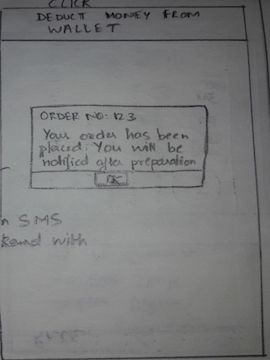 CLICK
DEDUCT MONEY FROM
WALLET
ORDER NO: 123
Your order has been
placed. You will be
notified after preparation
OK
SMS
with